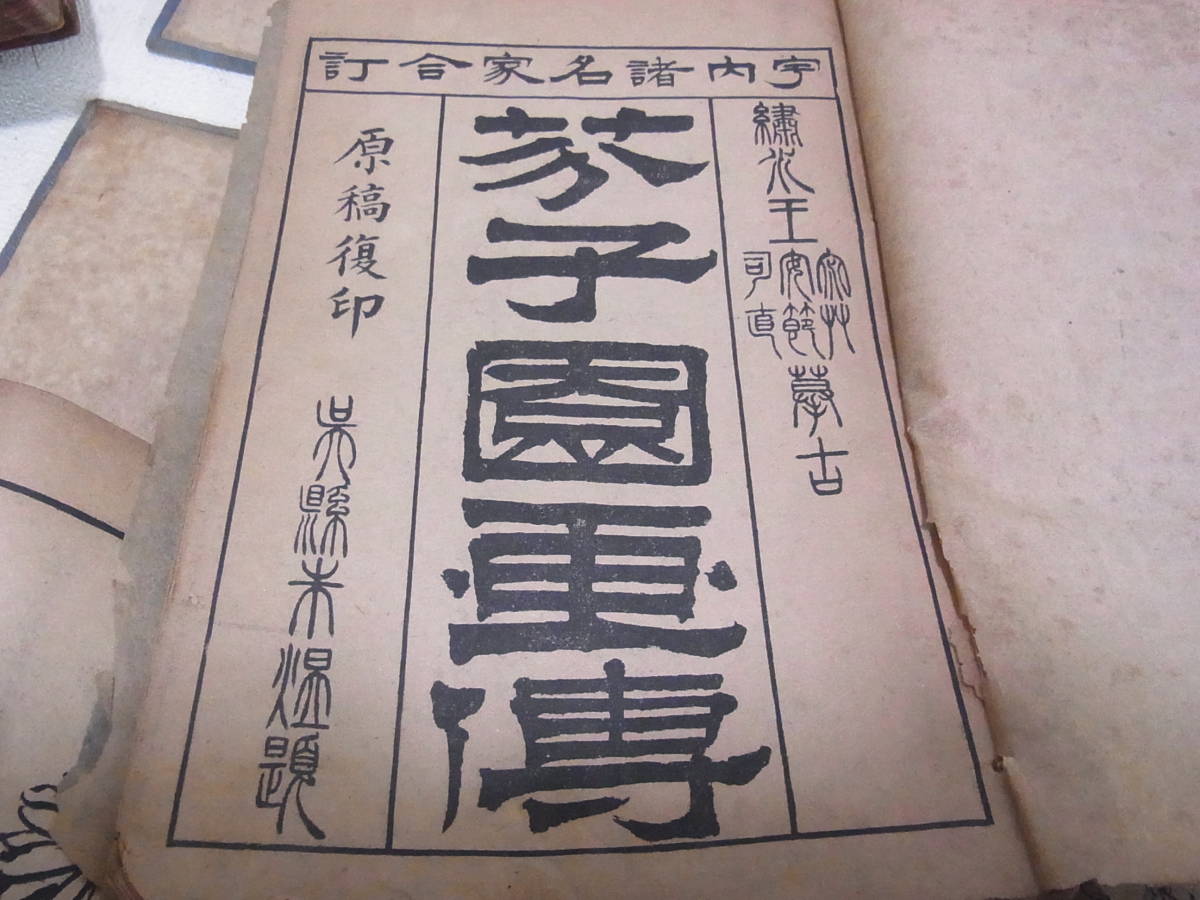 宇內諸名家合訂
繡水王
宓艸
安節
司直
摹古
芥子園畫傳
原稿復印
吳縣朱題